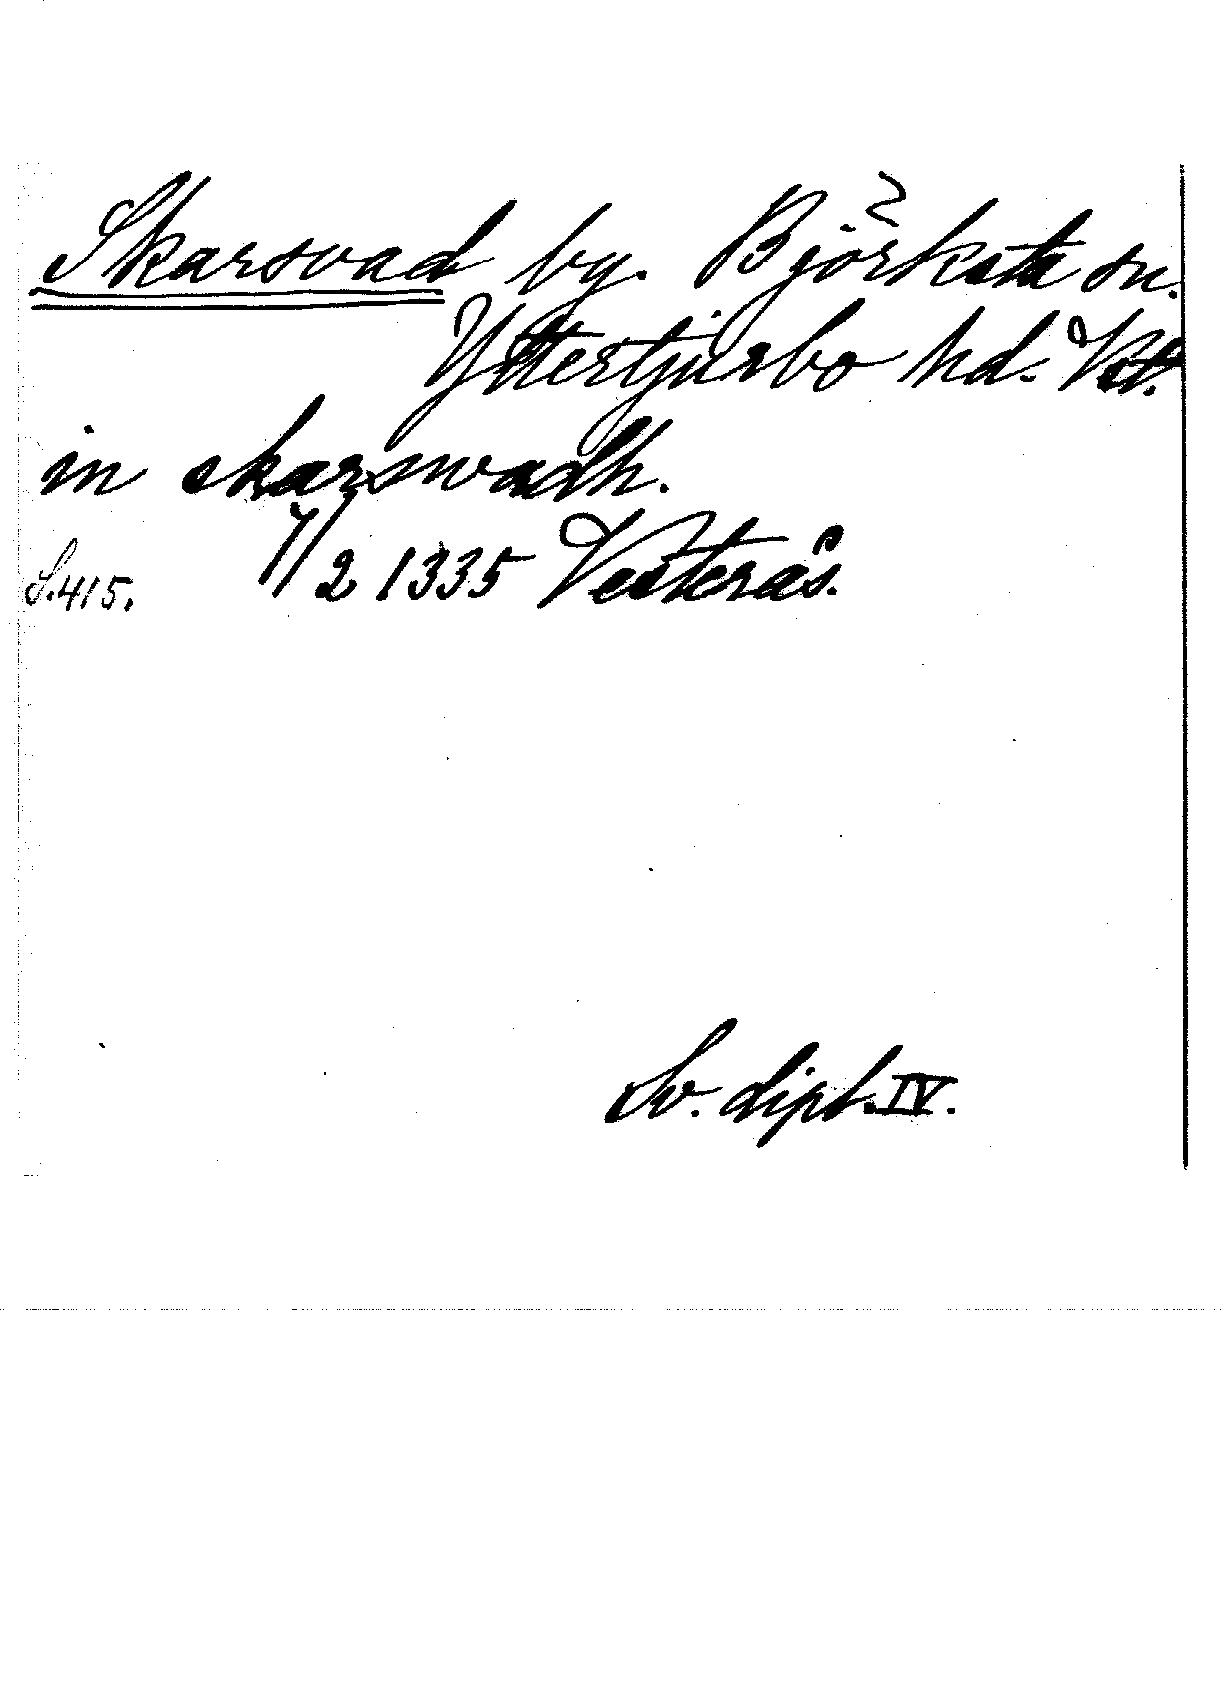 Skarsvad by. Björksta sn.
Yttertjurbo hd. Vstl.
in skarswadh.
S. 415. 7/2 1335 Vesterås.
Sv. dipl. IV.